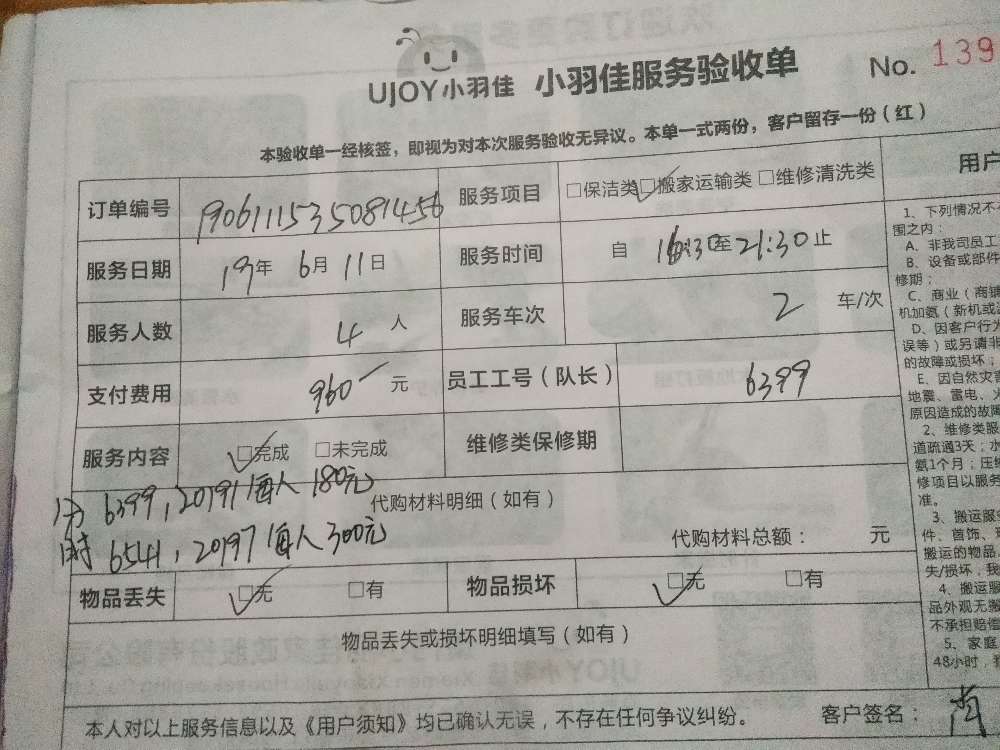 UJOY小羽佳 小羽佳服务验收单 No. 139
本验收单一经核签，即视为对本次服务验收无异议。本单一式两份，客户留存一份（红）
订单编号 1906111535081456 服务项目 □保洁类 ☑搬家运输类 □维修清洗类
服务日期 19年 6月 11日 服务时间 自 16:30至21:30止
服务人数 4 人 服务车次 2 车/次
支付费用 960 元 员工工号（队长） 6399
服务内容 ☑完成 □未完成 维修类保修期
6399，20191每人180元
代购材料明细（如有）
6541，20197每人300元
代购材料总额： 元
物品丢失 ☑无 □有 物品损坏 ☑无 □有
物品丢失或损坏明细填写（如有）
本人对以上服务信息以及《用户须知》均已确认无误，不存在任何争议纠纷。 客户签名：
用户
1、下列情况不
围之内：
A、非我司员工
B、设备或部件
修期；
C、商业（商铺
机加氨（新机或
D、因客户行为
误等）或另请非
的故障或损坏；
E、因自然灾害
地震、雷电、火
原因造成的故障
2、维修类服
道疏通3天；水
氨1个月；压缩
修项目以服务
准。
3、搬运服
件、首饰、玉
搬运的物品，
失/损坏，我
4、搬运服
品外观无搬
不承担赔偿
5、家庭
48小时，